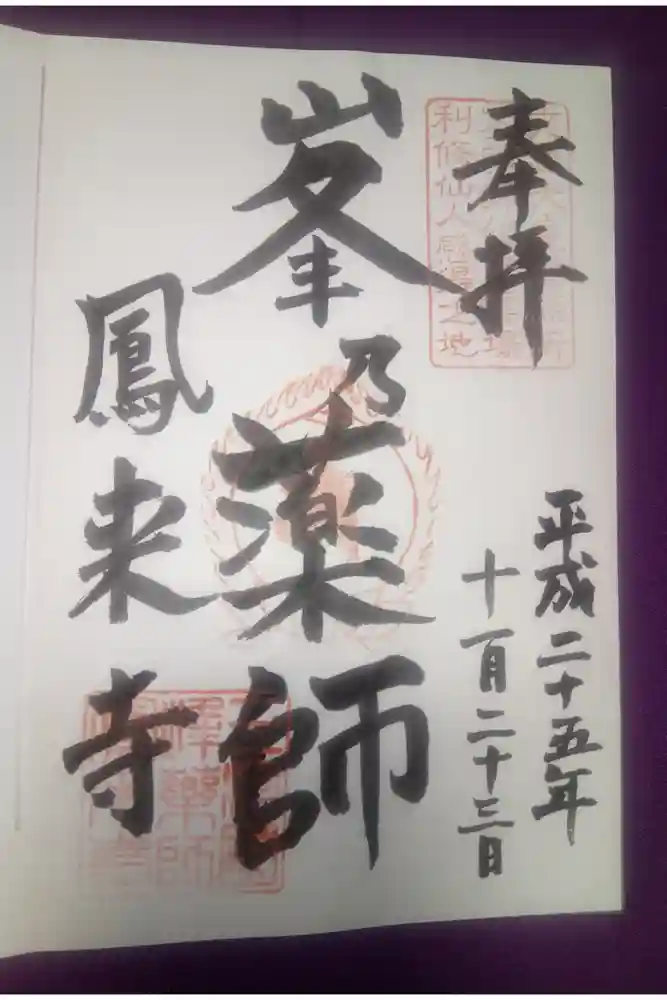 奉拝
平成二十五年
十一月二十三日
利修仙人感得之地
峯乃薬師
鳳来寺